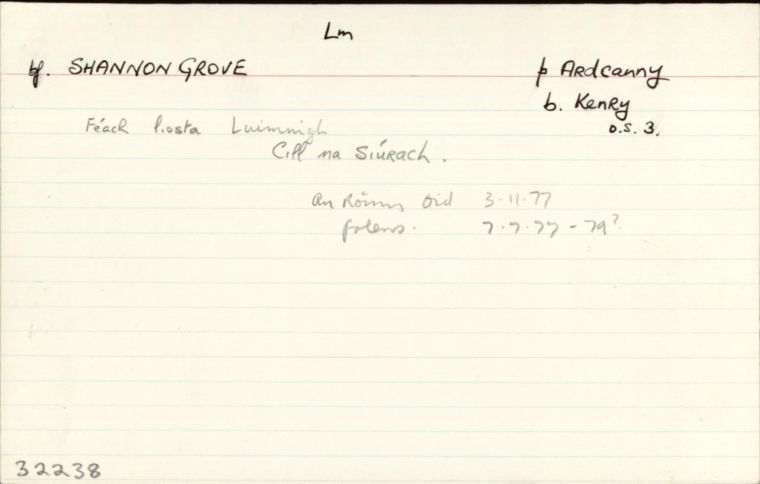 Lm
bf. SHANNON GROVE
p Ardcanny
b. Kenry
O.S. 3.
Féach liosta Luimnigh
Cill na Siúrach.
An Roinn Oid 3.11.77
folens. 7.7.77 - 79?
32238